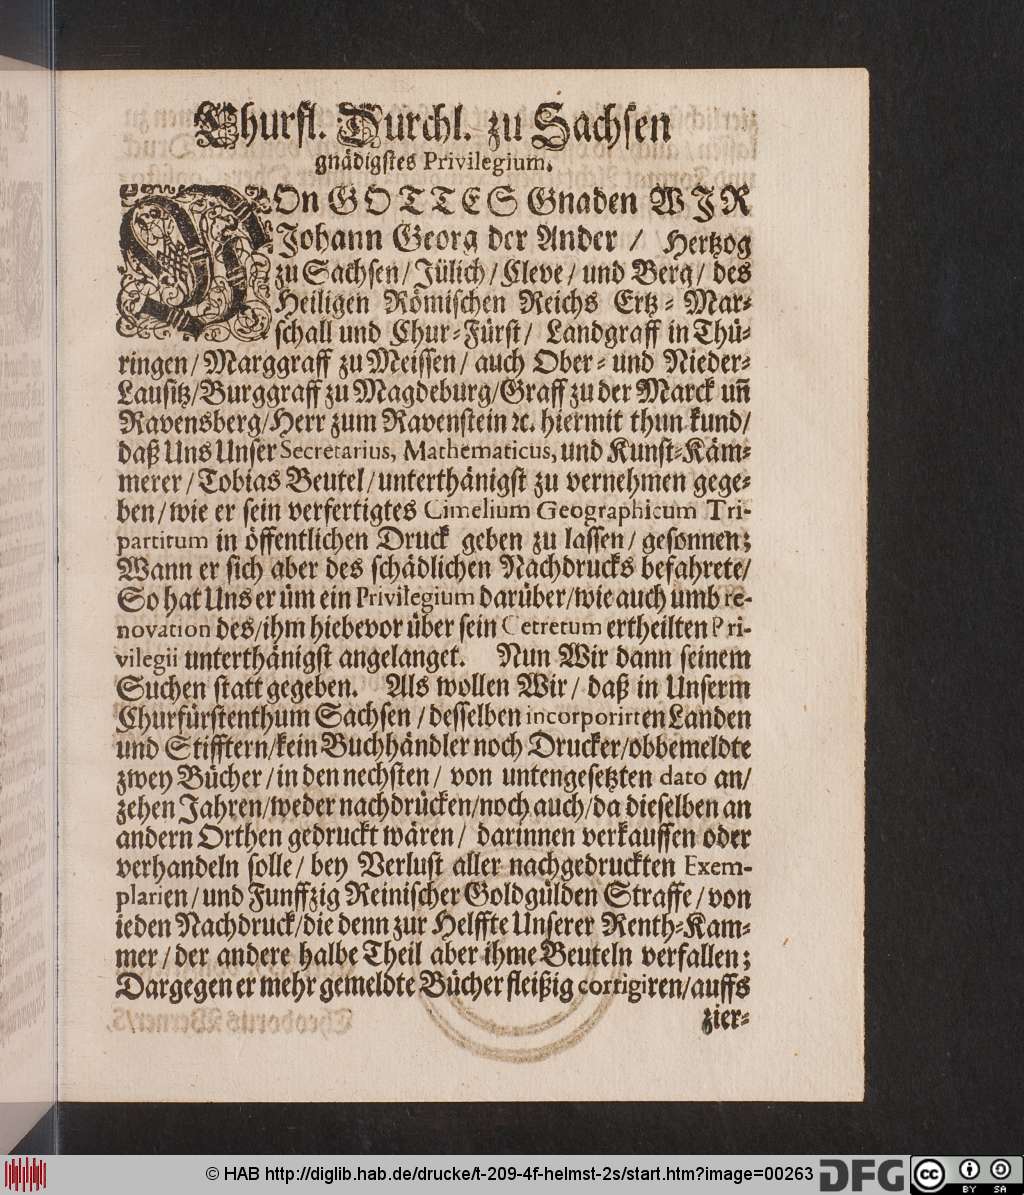 Churfl. Durchl. zu Sachsen
gnädigstes Privilegium.
VOn GOTTES Gnaden WIR
Johann Georg der Ander / Hertzog
zu Sachsen / Jülich / Cleve / und Berg / des
Heiligen Römischen Reichs Ertz-Mar-
schall und Chur-Fürst / Landgraff in Thü-
ringen / Marggraff zu Meissen / auch Ober- und Nieder-
Lausitz / Burggraff zu Magdeburg / Graff zu der Marck uñ
Ravensberg / Herr zum Ravenstein ꝛc. hiermit thun kund /
daß Uns Unser Secretarius, Mathematicus, und Kunst-Käm-
merer / Tobias Beutel / unterthänigst zu vernehmen gege-
ben / wie er sein verfertigtes Cimelium Geographicum Tri-
partitum in öffentlichen Druck geben zu lassen / gesonnen;
Wann er sich aber des schädlichen Nachdrucks befahrete /
So hat Uns er üm ein Privilegium darüber / wie auch umb re-
novation des / ihm hiebevor über sein Cetretum ertheilten Pri-
vilegii unterthänigst angelanget. Nun Wir dann seinem
Suchen statt gegeben. Als wollen Wir / daß in Unserm
Churfürstenthum Sachsen / desselben incorporirten Landen
und Stifftern / kein Buchhändler noch Drucker / obbemeldte
zwey Bücher / in den nechsten / von untengesetzten dato an /
zehen Jahren / weder nachdrücken / noch auch / da dieselben an
andern Orthen gedruckt wären / darinnen verkauffen oder
verhandeln solle / bey Verlust aller nachgedruckten Exem-
plarien / und Funffzig Reinischer Goldgülden Straffe / von
ieden Nachdruck / die denn zur Helffte Unserer Renth-Kam-
mer / der andere halbe Theil aber ihme Beuteln verfallen;
Dargegen er mehr gemeldte Bücher fleißig corrigiren / auffs
zier-
© HAB http://diglib.hab.de/drucke/t-209-4f-helmst-2s/start.htm?image=00263 DFG cc BY SA